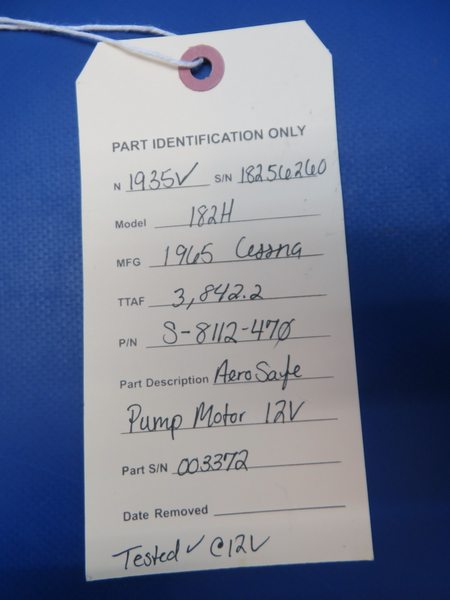 PART IDENTIFICATION ONLY
N 1935V S/N 18256260
Model 182H
MFG 1965 Cessna
TTAF 3,842.2
P/N S-8112-470
Part Description AeroSafe
Pump Motor 12V
Part S/N 003372
Date Removed
Tested ✓ @12V